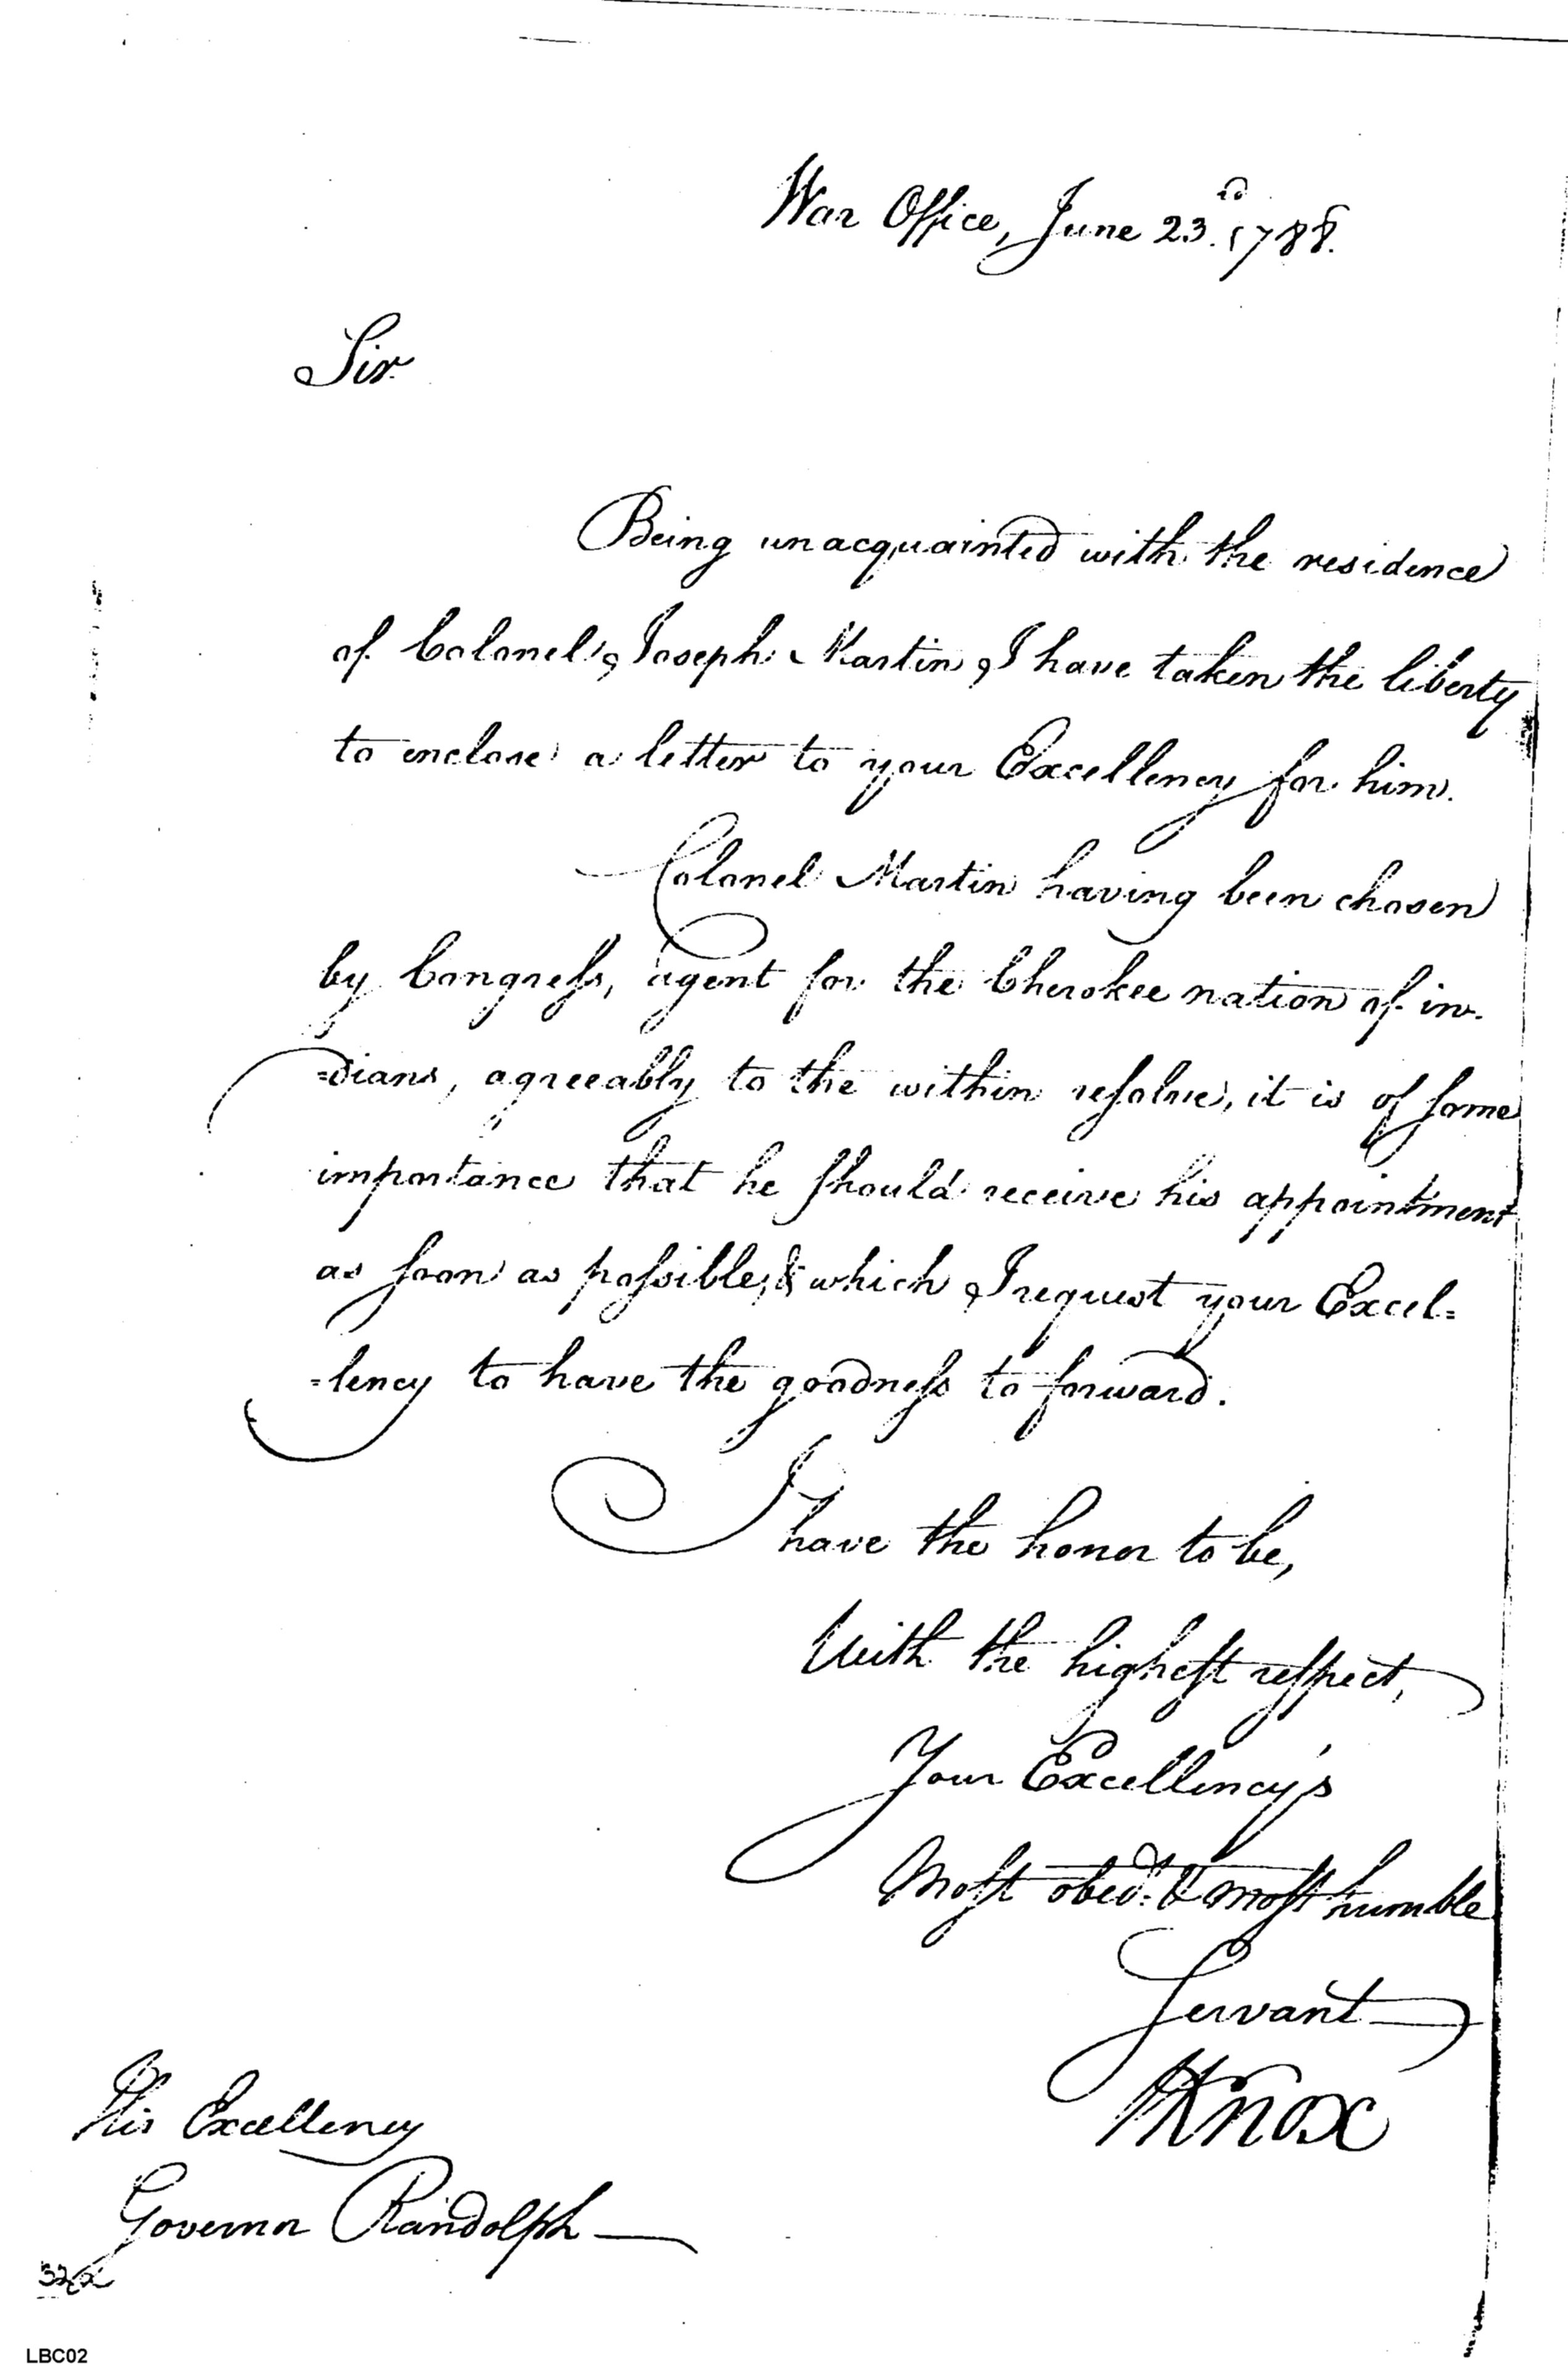 War Office, June 23.rd 1788.
Sir
Being unacquainted with the residence
of Colonel Joseph Martin I have taken the liberty
to enclose a letter to your Excellency for him.
Colonel Martin having been chosen
by Congreſs, agent for the Cherokee nation of in-
=dians, agreeably to the within reſolve, it is of ſome
importance that he ſhould receive his appointment
as ſoon as poſsible, & which I request your Excel=
=lency to have the goodneſs to forward.
I have the honor to be,
With the higheſt reſpect,
Your Excellency's
Moſt obed.t & moſt humble
Servant
HKnox
His Excellency
Governor Randolph
LBC02